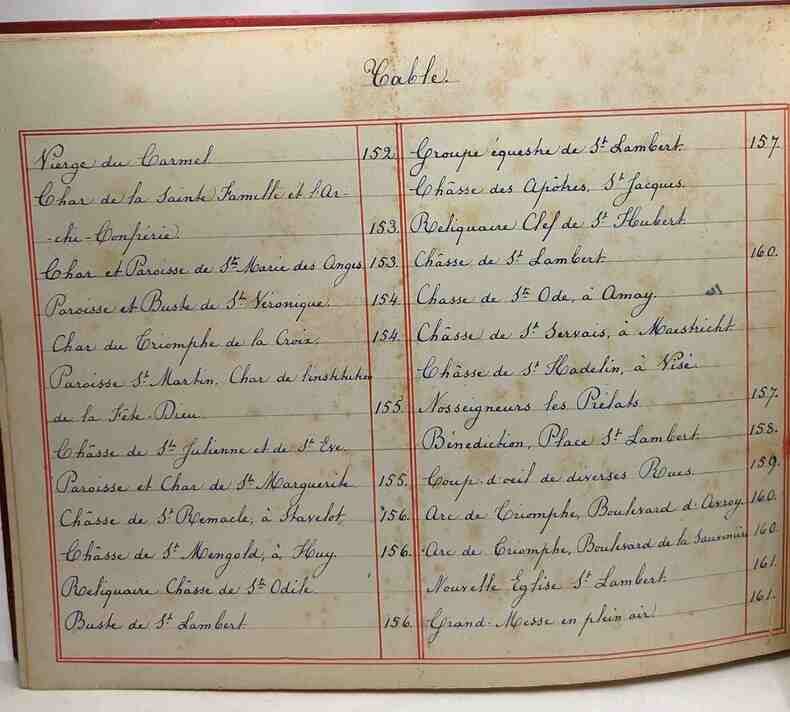 Table.
Vierge du Carmel 152
Char de la Sainte Famille et l'Ar-
-chi-Confrérie. 153.
Char et Paroisse de Ste Marie des Anges 153.
Paroisse et Buste de Ste Véronique. 154
Char du Triomphe de la Croix. 154.
Paroisse St Martin. Char de l'institution
de la Fête-Dieu 155.
Châsse de Ste Julienne et de St Eve.
Paroisse et Char de Ste Marguerite 155.
Châsse de St Remacle, à Stavelot, 156.
Châsse de St Mengold, à Huy 156.
Reliquaire Châsse de Ste Odile
Buste de St Lambert 156.
Groupe équestre de St Lambert. 157
Châsse des Apôtres, St Jacques.
Reliquaire Clef de St Hubert.
Châsse de St Lambert 160.
Chasse de Ste Ode, à Amay.
Châsse de St Servais, à Maestricht
Châsse de St Hadelin, à Visé.
Nosseigneurs les Prélats 157.
Bénediction, Place St Lambert. 158.
Coup d'oeil de diverses Rues. 159.
Arc de Triomphe, Boulevard d'Avroy. 160.
Arc de Triomphe, Boulevard de la Sauvenière 160.
Nouvelle Eglise St Lambert 161.
Grand-Messe en plein air 161.